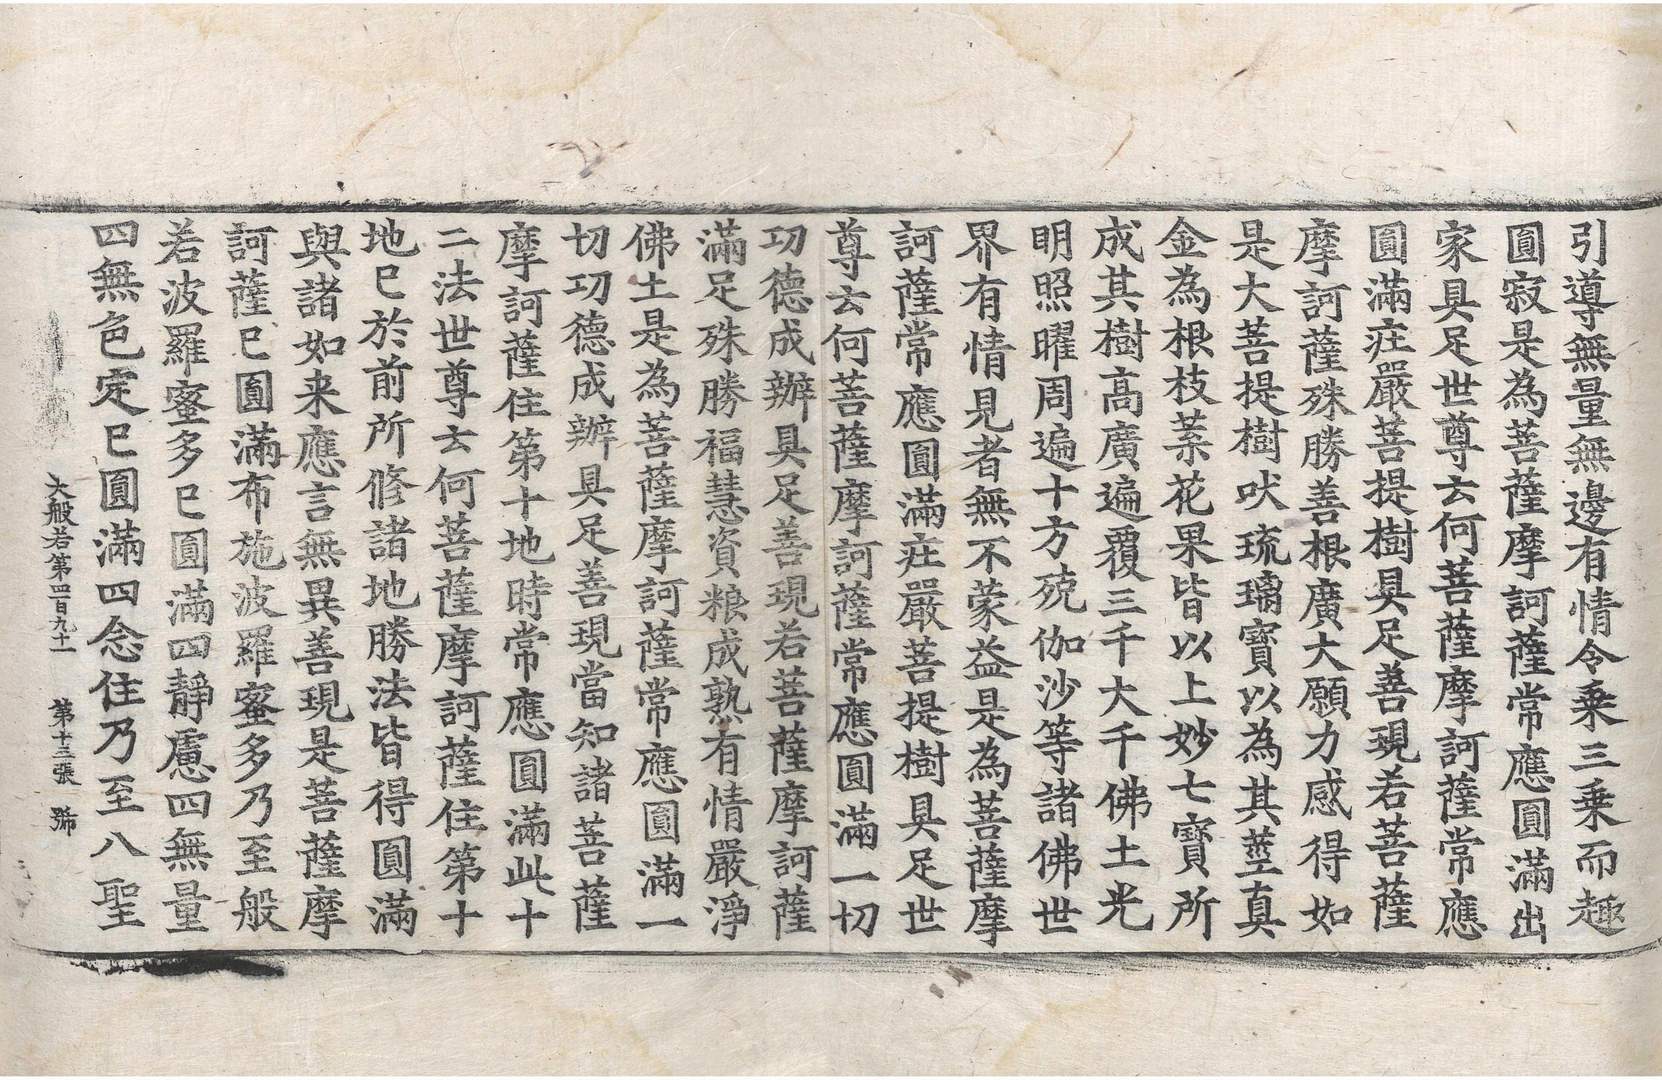 引導無量無邊有情令乘三乘而趣
圓寂是為菩薩摩訶薩常應圓滿出
家具足世尊云何菩薩摩訶薩常應
圓滿莊嚴菩提樹具足善現若菩薩
摩訶薩殊勝善根廣大願力感得如
是大菩提樹吠琉璃寶以為其莖真
金為根枝葉花果皆以上妙七寶所
成其樹高廣遍覆三千大千佛土光
明照曜周遍十方殑伽沙等諸佛世
界有情見者無不蒙益是為菩薩摩
訶薩常應圓滿莊嚴菩提樹具足世
尊云何菩薩摩訶薩常應圓滿一切
功德成辦具足善現若菩薩摩訶薩
滿足殊勝福慧資粮成熟有情嚴淨
佛土是為菩薩摩訶薩常應圓滿一
切功德成辦具足善現當知諸菩薩
摩訶薩住第十地時常應圓滿此十
二法世尊云何菩薩摩訶薩住第十
地已於前所修諸地勝法皆得圓滿
與諸如来應言無異善現是菩薩摩
訶薩已圓滿布施波羅蜜多乃至般
若波羅蜜多已圓滿四靜慮四無量
四無色定已圓滿四念住乃至八聖
大般若第四百九十一 第十三張 號